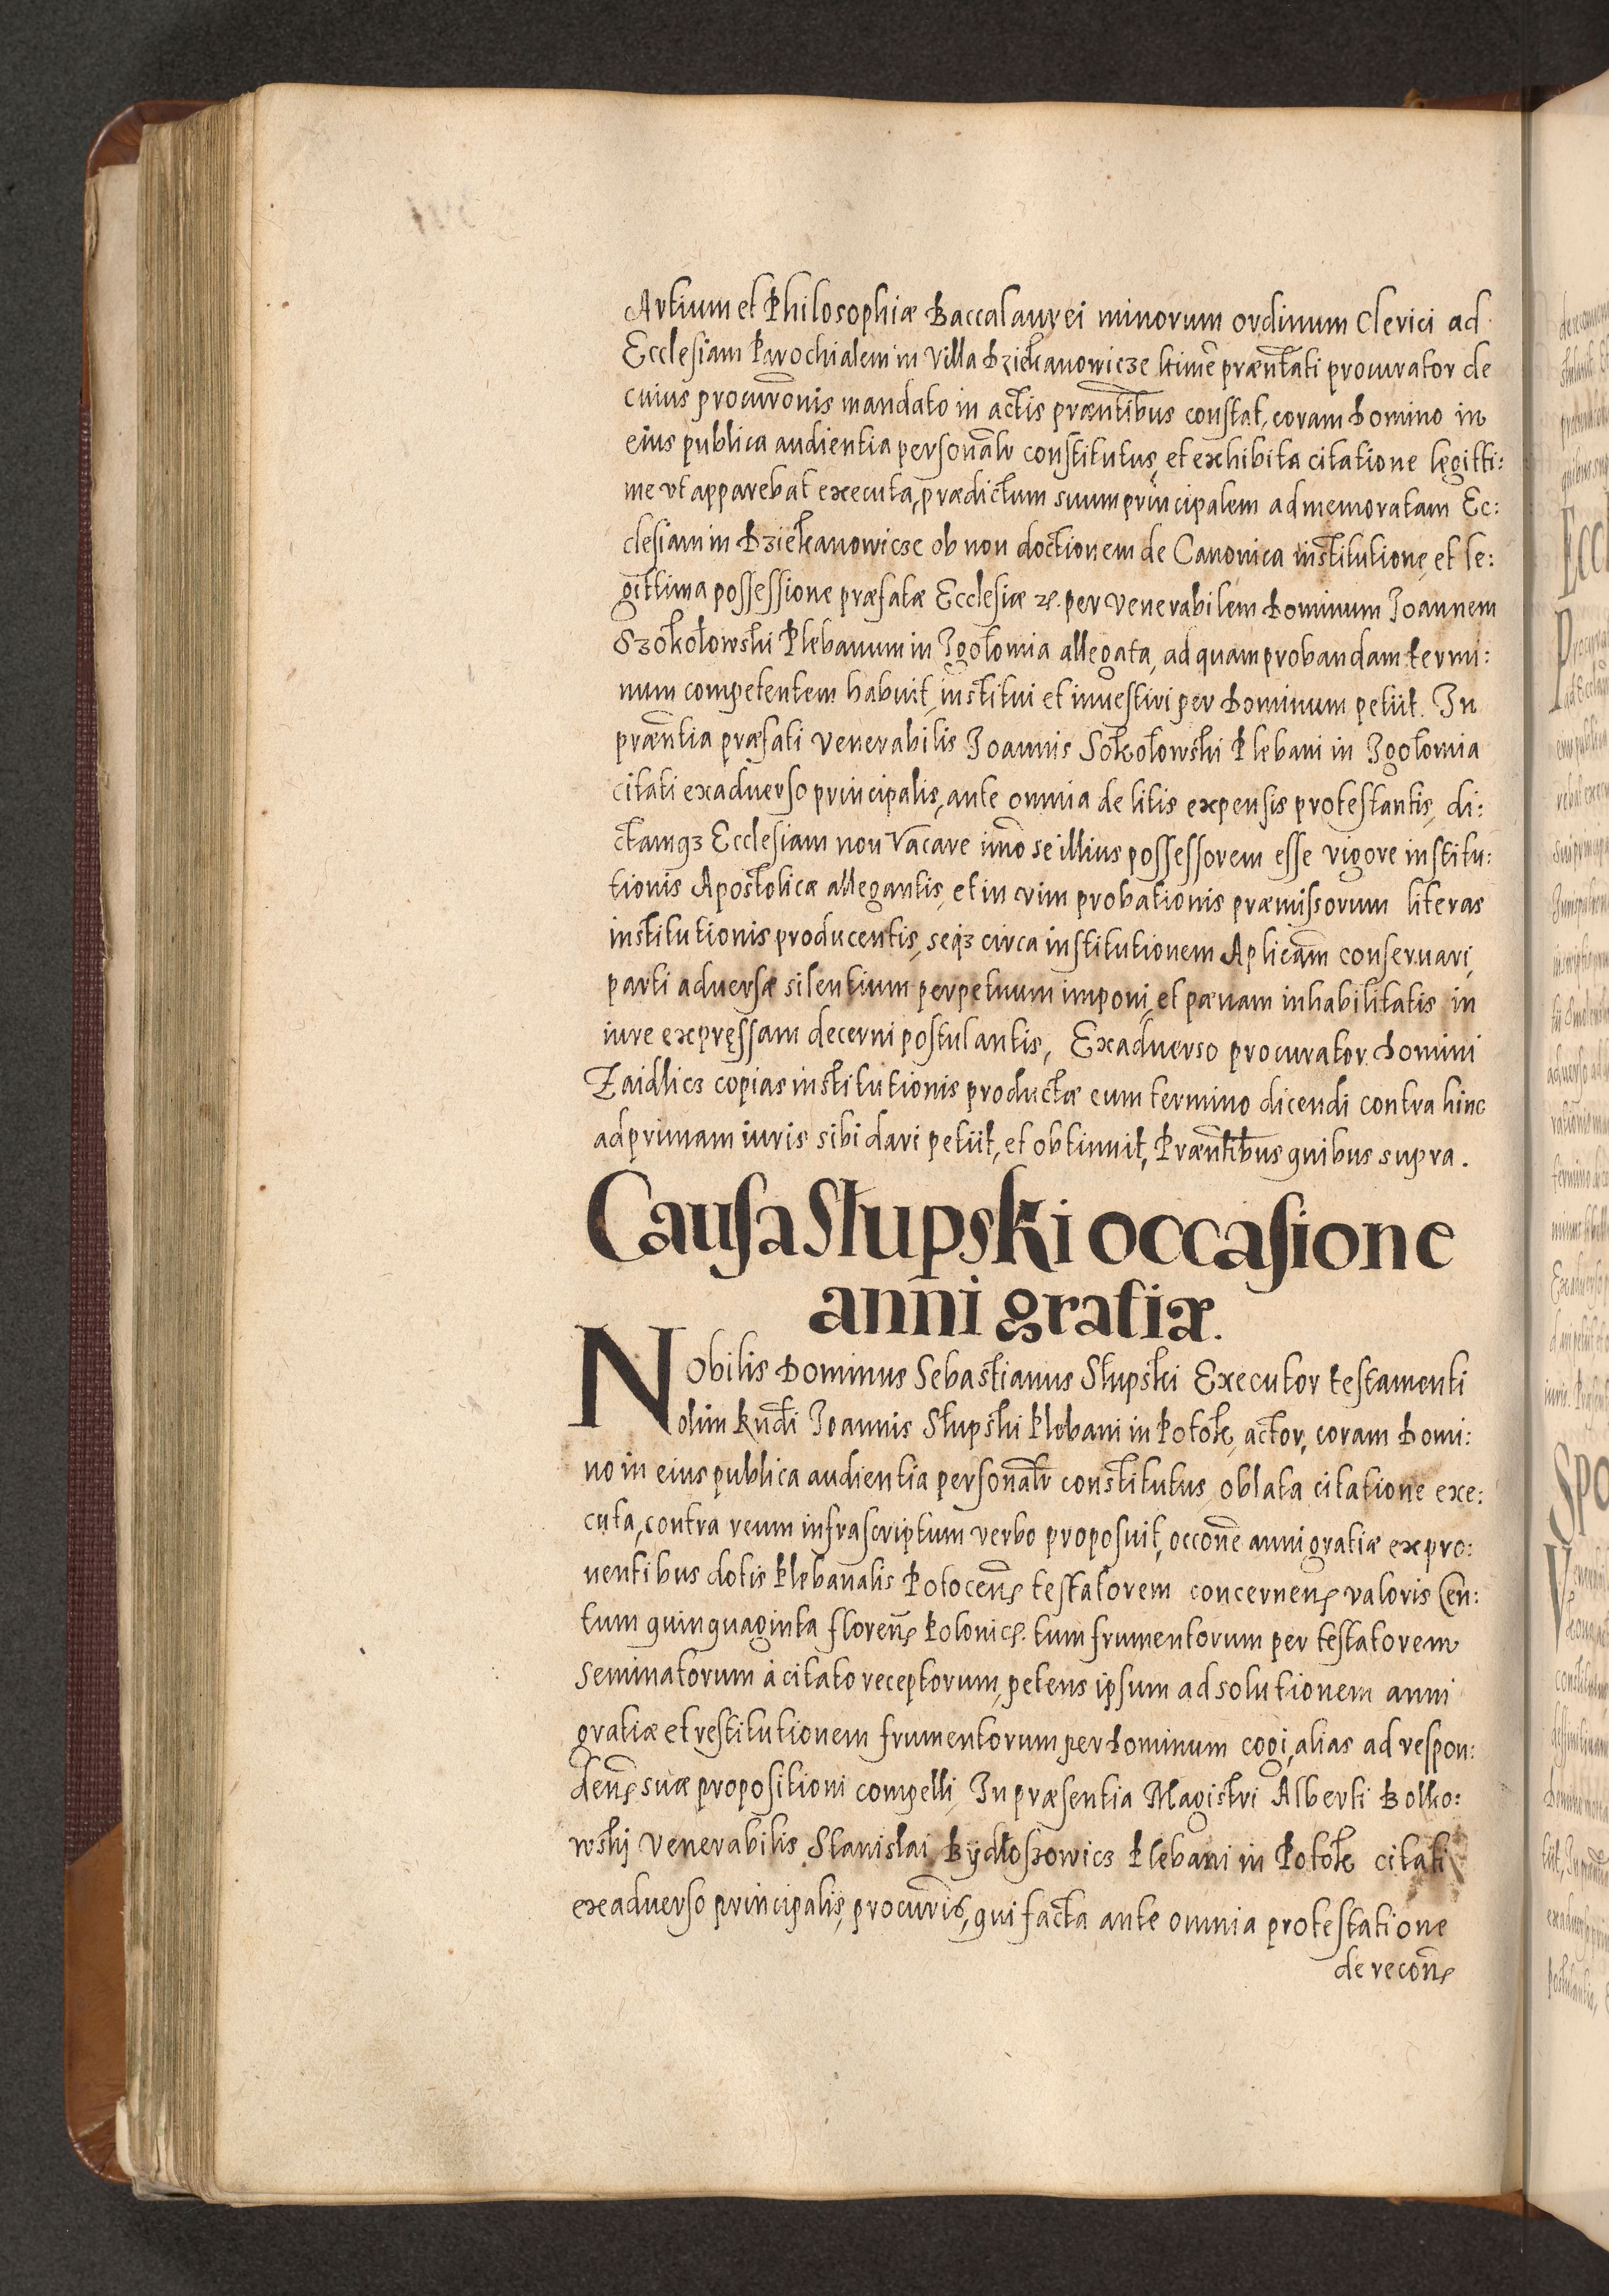 Artium et Philosophiæ Baccalaurei minorum ordinum Clerici ad
Ecclesiam Parochialem in Villa Dziekanowicze ltimẽ præntati procurator de
cuius procurõnis mandato in actis præntibus constat, coram Domino in
eius publica audientia personalr constitutus, et exhibita citatione legitti:
me vt apparebat executa, prædictum suum principalem ad memoratam Ec:
clesiam in Dziekanowicze ob non doctionem de Canonica institutione, et le:
gittima possessione præfatæ Ecclesiæ etc. per Venerabilem Dominum Joannem
Szokołowski Plebanum in Jgołomia allegata, ad quam probandam termi:
num competentem habuit, institui et inuestiri per Dominum petiit. In
præntia præfati Venerabilis Joannis Sokołowski Plebani in Jgołomia
citati exaduerso principalis, ante omnia de litis expensis protestantis, di:
ctamqз Ecclesiam non Vacare imo se illius possessorem esse vigore institu:
tionis Apostolicæ allegantis, et in vim probationis præmissorum literas
institutionis producentis, seqз circa institutionem Aplicam conseruari,
parti aduersæ silentium perpetuum imponi, et pænam inhabilitatis in
iure expressam decerni postulantis, Exaduerso procurator Domini
Zaidlicz copias institutionis productæ cum termino dicendi contra hinc
ad primam iuris sibi dari petiit, et obtinuit, Præntibus quibus supra.
Causa Słupski occasione
anni gratiæ.
Nobilis Dominus Sebastianus Słupski Executor testamenti
olim Rndi Joannis Słupski Plebani in Potok, actor, coram Domi:
no in eius publica audientia personalr constitutus oblata citatione exe:
cuta, contra reum infrascriptum verbo proposuit, occone anni gratiæ ex pro:
uentibus dotis Plebanalis Potocens testatorem concernens valoris Cen:
tum quinquaginta florens Polonics. tum frumentorum per testatorem
seminatorum à citato receptorum, petens ipsum ad solutionem anni
gratiæ et restitutionem frumentorum per Dominum cogi, alias ad respon:
dens suæ propositioni compelli, In præsentia Magistri Alberti Bolko:
wskj Venerabilis Stanislai Bydłoszowicz Plebani in Potok citati
exaduerso principalis, procuris, qui facta ante omnia protestatione
de recons